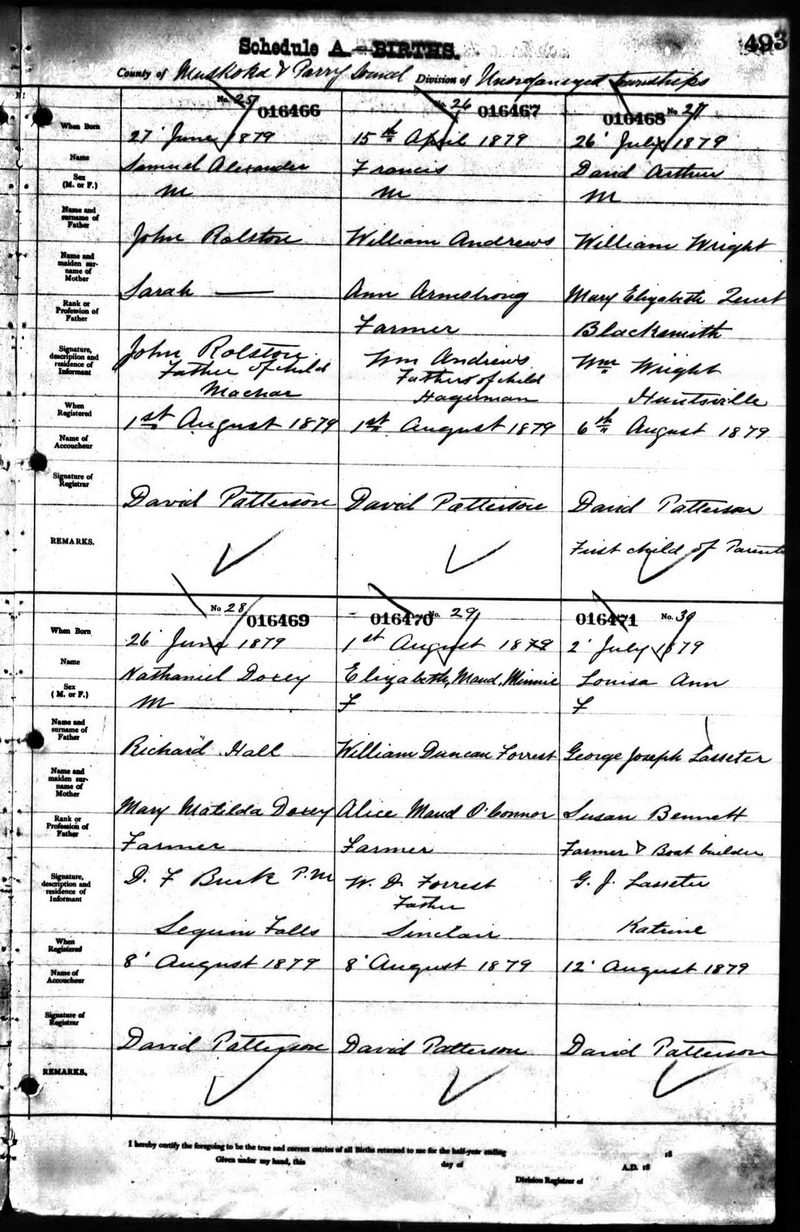 493
Schedule A.—BIRTHS.
County of Muskoka & Parry Sound Division of Unorganized townships
No. 25 016466 No. 26 016467 016468 No. 27
When Born 27 June 1879 15th April 1879 26 July 1879
Name Samuel Alexander Francis David Arthur
Sex (M. or F.) M M M
Name and surname of Father John Rolston William Andrews William Wright
Name and maiden surname of Mother Sarah — Ann Armstrong Mary Elizabeth
Rank or Profession of Father Farmer Blacksmith
Signature, description and residence of Informant John Rolston Wm Andrews Wm Wright
Father of child Father of child
Machar Hagerman Huntsville
When Registered 1st August 1879 1st August 1879 6th August 1879
Name of Accoucheur
Signature of Registrar David Patterson David Patterson David Patterson
REMARKS. First child of Parents
No 28 016469 016470 No. 29 016471 No. 30
When Born 26 June 1879 1st August 1879 2 July 1879
Name Nathaniel Docey Elizabeth, Maud, Minnie Louisa Ann
Sex (M. or F.) M F F
Name and surname of Father Richard Hall William Duncan Forrest George Joseph Lasseter
Name and maiden surname of Mother Mary Matilda Docey Alice Maud O'Connor Susan Bennett
Rank or Profession of Father Farmer Farmer Farmer & Boat builder
Signature, description and residence of Informant D. F Burk P.M W. D. Forrest G. J. Lasseter
Father
Seguin Falls Sinclair Katrine
When Registered 8 August 1879 8 August 1879 12 August 1879
Name of Accoucheur
Signature of Registrar David Patterson David Patterson David Patterson
REMARKS.
I hereby certify the foregoing to be the true and correct entries of all Births returned to me for the half-year ending 18
Given under my hand, this day of A.D. 18
Division Registrar of